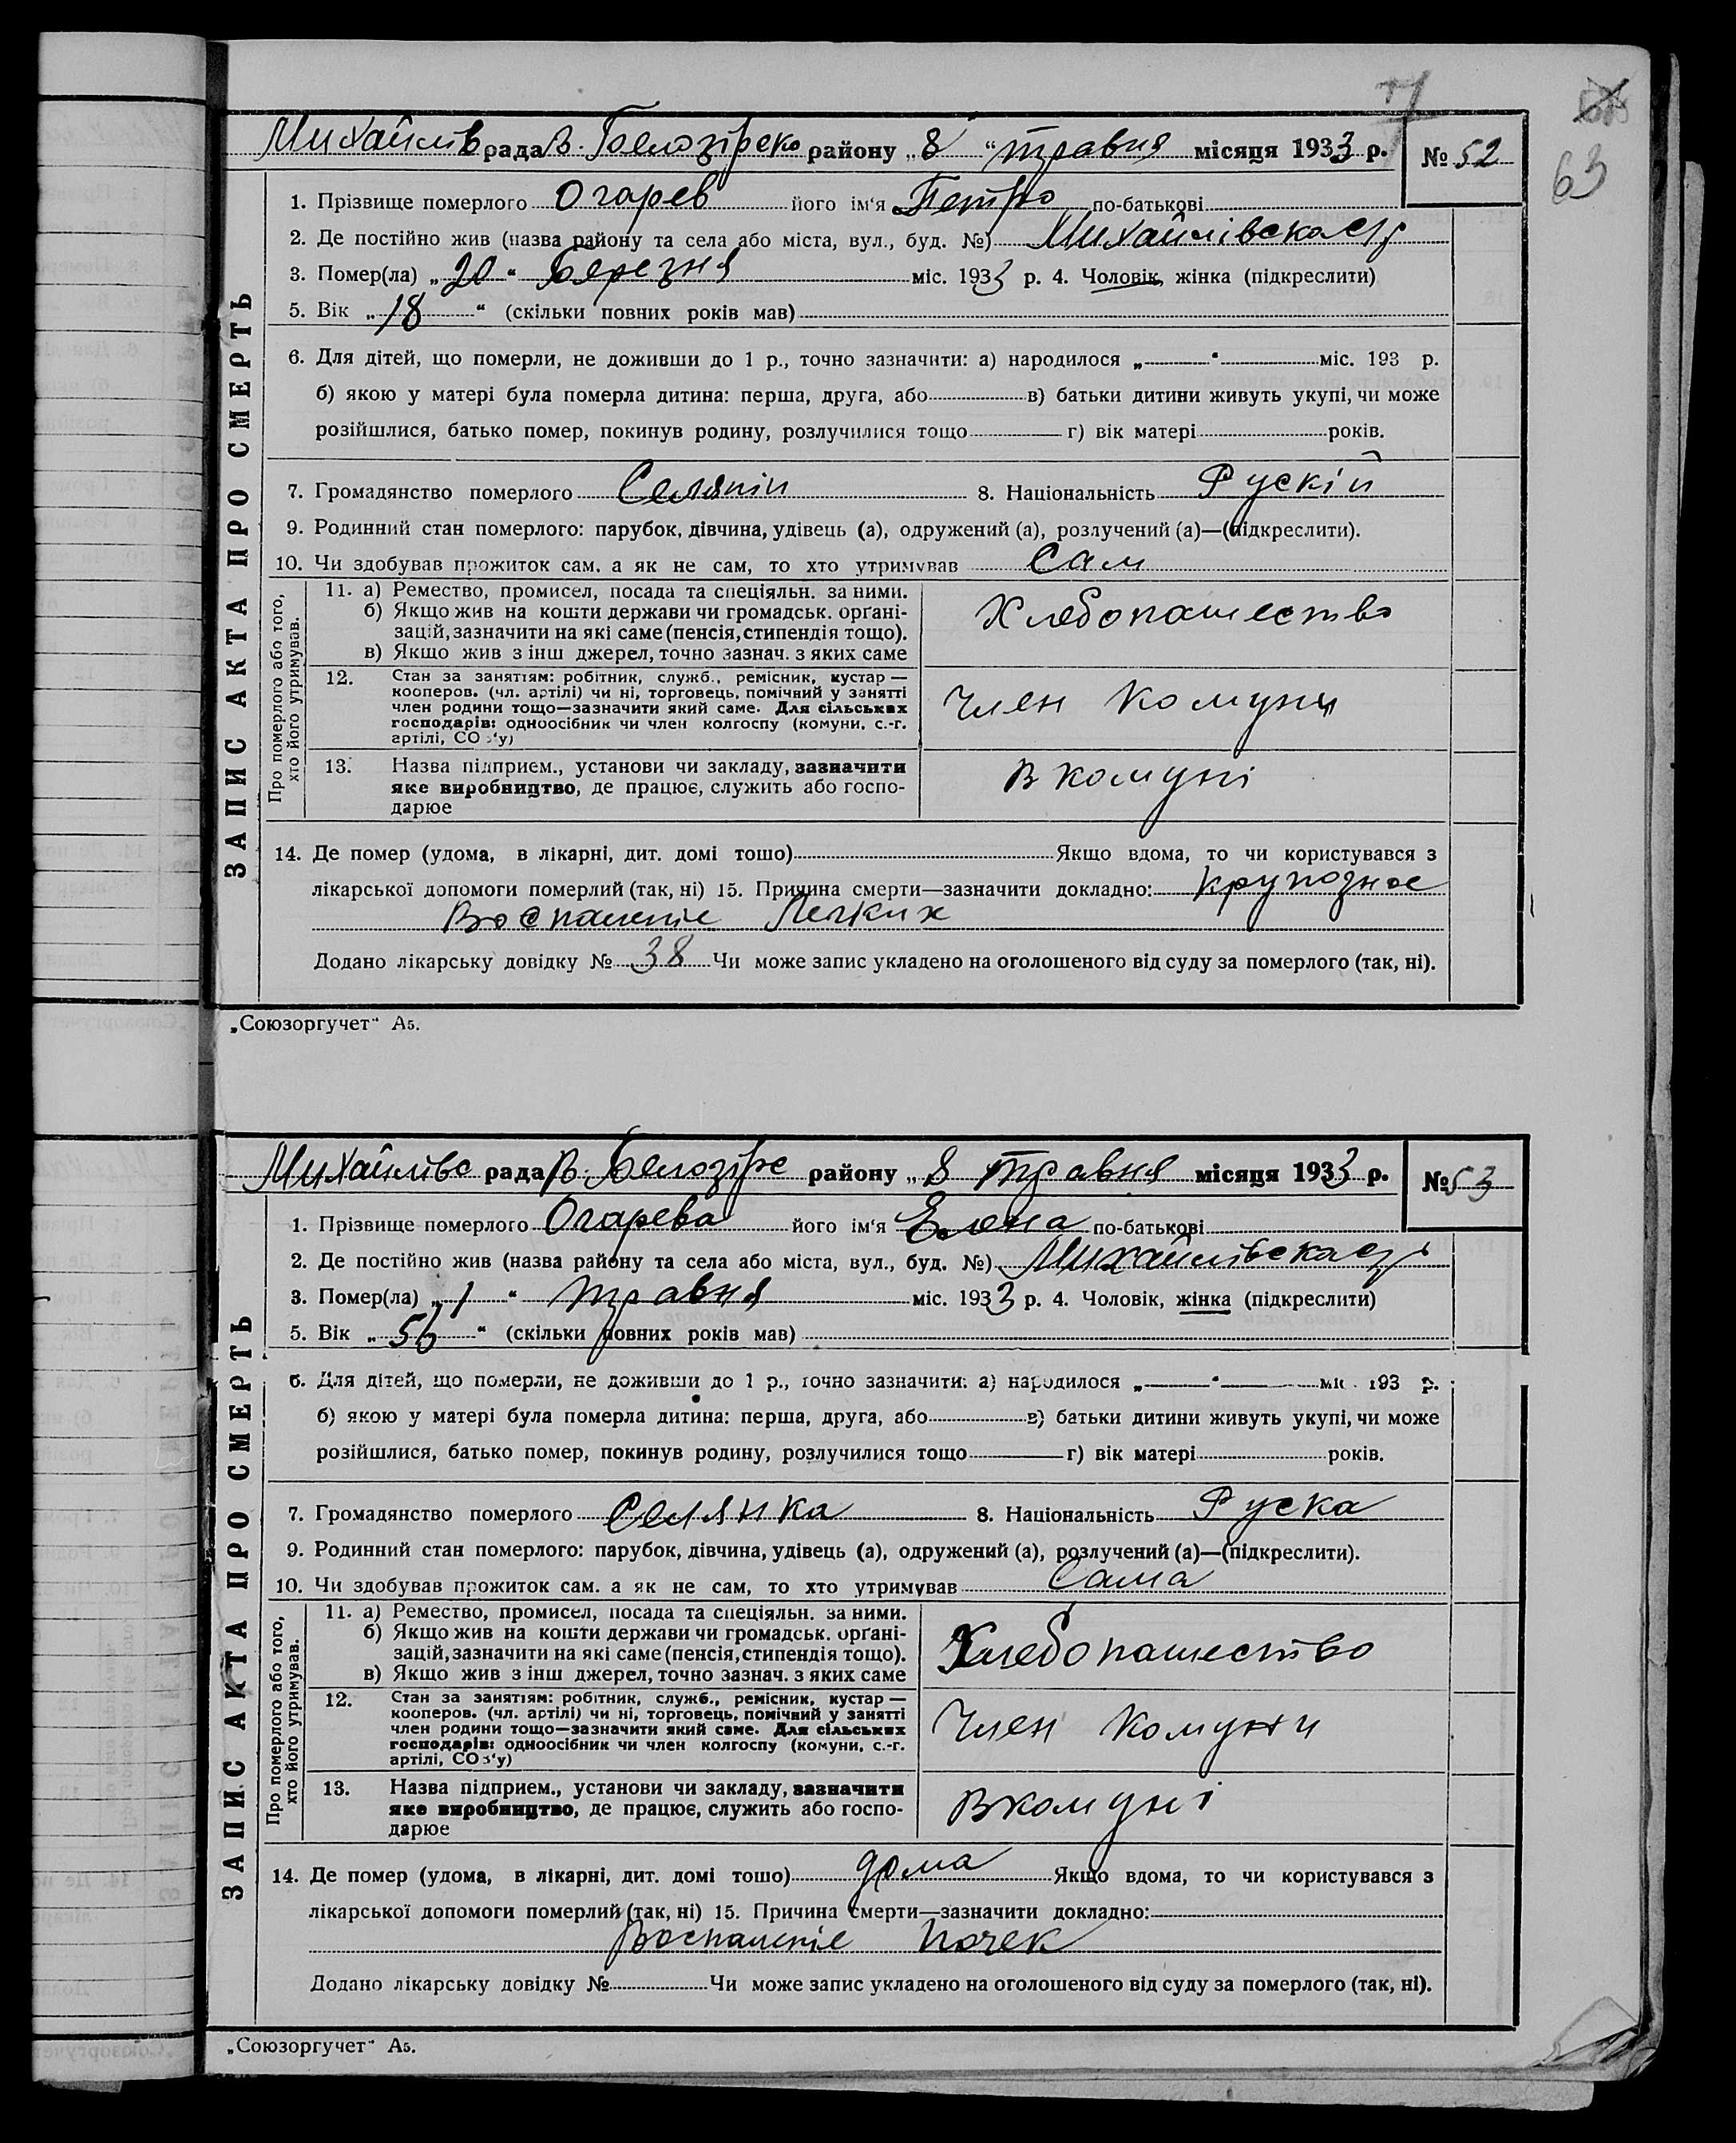 63
Михайлів рада В. Белозірско району „8“ травня місяця 1933 р. № 52
ЗАПИС АКТА ПРО СМЕРТЬ
1. Прізвище померлого Огарев його ім‘я Петро по-батькові
2. Де постійно жив (назва району та села або міста, вул., буд. №) Михайлівска с/р
3. Помер(ла) „20“ Березня міс. 1933 р. 4. Чоловік, жінка (підкреслити)
5. Вік „18“ (скільки повних років мав)
6. Для дітей, що померли, не доживши до 1 р., точно зазначити: а) народилося „ “ міс. 193 р.
б) якою у матері була померла дитина: перша, друга, або в) батьки дитини живуть укупі, чи може
розійшлися, батько помер, покинув родину, розлучилися тощо г) вік матері років.
7. Громадянство померлого Селянін 8. Національність Рускій
9. Родинний стан померлого: парубок, дівчина, удівець (а), одружений (а), розлучений (а)—(підкреслити).
10. Чи здобував прожиток сам, а як не сам, то хто утримував Сам
Про померлого або того, хто його утримував.
11. а) Ремество, промисел, посада та спеціяльн. за ними.
б) Якщо жив на кошти держави чи громадськ. орґані-
зацій, зазначити на які саме (пенсія, стипендія тощо).
в) Якщо жив з інш джерел, точно зазнач. з яких саме
Хлебопашество
12. Стан за заняттям: робітник, служб., ремісник, кустар—
кооперов. (чл. артілі) чи ні, торговець, помічний у занятті
член родини тощо—зазначити який саме. Для сільських
господарів: одноосібник чи член колгоспу (комуни, с.-г.
артілі, СОЗ‘у)
Член Комуни
13. Назва підприєм., установи чи закладу, зазначити
яке виробництво, де працює, служить або госпо-
дарює
В комуні
14. Де помер (удома, в лікарні, дит. домі тошо) Якщо вдома, то чи користувався з
лікарської допомоги померлий (так, ні) 15. Причина смерти—зазначити докладно: крупозное
Воспаленіе Легких
Додано лікарську довідку № 38 Чи може запис укладено на оголошеного від суду за померлого (так, ні).
„Союзоргучет“ А5.
Михайлівс рада В. Белозірс району „8 травня місяця 1933 р. № 53
ЗАПИС АКТА ПРО СМЕРТЬ
1. Прізвище померлого Огарева його ім‘я Елена по-батькові
2. Де постійно жив (назва району та села або міста, вул., буд. №) Михайлівска с/р
3. Помер(ла) „1“ травня міс. 1933 р. 4. Чоловік, жінка (підкреслити)
5. Вік „56“ (скільки повних років мав)
6. Для дітей, що померли, не доживши до 1 р., точно зазначити: а) народилося „ “ міс. 193 р.
б) якою у матері була померла дитина: перша, друга, або в) батьки дитини живуть укупі, чи може
розійшлися, батько помер, покинув родину, розлучилися тощо г) вік матері років.
7. Громадянство померлого Селянка 8. Національність Руска
9. Родинний стан померлого: парубок, дівчина, удівець (а), одружений (а), розлучений (а)—(підкреслити).
10. Чи здобував прожиток сам, а як не сам, то хто утримував Сама
Про померлого або того, хто його утримував.
11. а) Ремество, промисел, посада та спеціяльн. за ними.
б) Якщо жив на кошти держави чи громадськ. орґані-
зацій, зазначити на які саме (пенсія, стипендія тощо).
в) Якщо жив з інш джерел, точно зазнач. з яких саме
Хлебопашество
12. Стан за заняттям: робітник, служб., ремісник, кустар—
кооперов. (чл. артілі) чи ні, торговець, помічний у занятті
член родини тощо—зазначити який саме. Для сільських
господарів: одноосібник чи член колгоспу (комуни, с.-г.
артілі, СОЗ‘у)
Член Комуни
13. Назва підприєм., установи чи закладу, зазначити
яке виробництво, де працює, служить або госпо-
дарює
В комуні
14. Де помер (удома, в лікарні, дит. домі тошо) дома Якщо вдома, то чи користувався з
лікарської допомоги померлий (так, ні) 15. Причина смерти—зазначити докладно:
Воспаленіе Почек
Додано лікарську довідку № Чи може запис укладено на оголошеного від суду за померлого (так, ні).
„Союзоргучет“ А5.